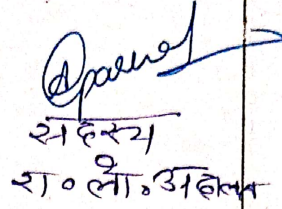 सदस्य
रा०लो०अदालत